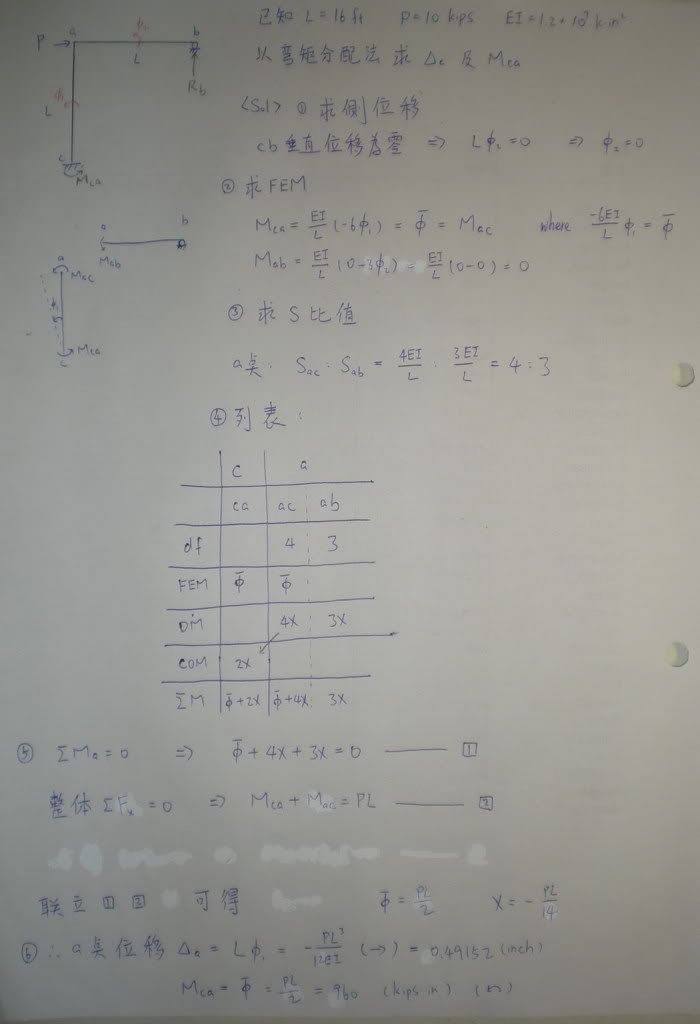 已知 L = 16 ft P = 10 kips EI = 1.2×10⁷ k·in²
以弯矩分配法求 Δc 及 Mca
P
a
φ₂
b
L
Rb
L
φ₁
c
Mca
<Sol> ① 求侧位移
cb 垂直位移為零 ⇒ Lφ₂=0 ⇒ φ₂=0
② 求 FEM
Mca = EI/L (-6φ₁) = Φ̄ = Mac where -6EI/L φ₁ = Φ̄
Mab = EI/L (0-3φ₂) = EI/L (0-0) = 0
a
b
Mab
a
Mac
φ₁
Mca
c
③ 求 S 比值
a点: Sac : Sab = 4EI/L : 3EI/L = 4:3
④ 列表:
c a
ca ac ab
df 4 3
FEM Φ̄ Φ̄
DM 4X 3X
COM 2X
ΣM Φ̄+2X Φ̄+4X 3X
⑤ ΣMa = 0 ⇒ Φ̄+4X+3X=0 —— 1
整体 ΣFx = 0 ⇒ Mca + Mac = PL —— 2
联立 1 2 可得 Φ̄ = PL/2 X = -PL/14
⑥ ∴ a点位移 Δa = Lφ₁ = -PL³/12EI (→) = 0.49152 (inch)
Mca = Φ̄ = PL/2 = 960 (kips in)